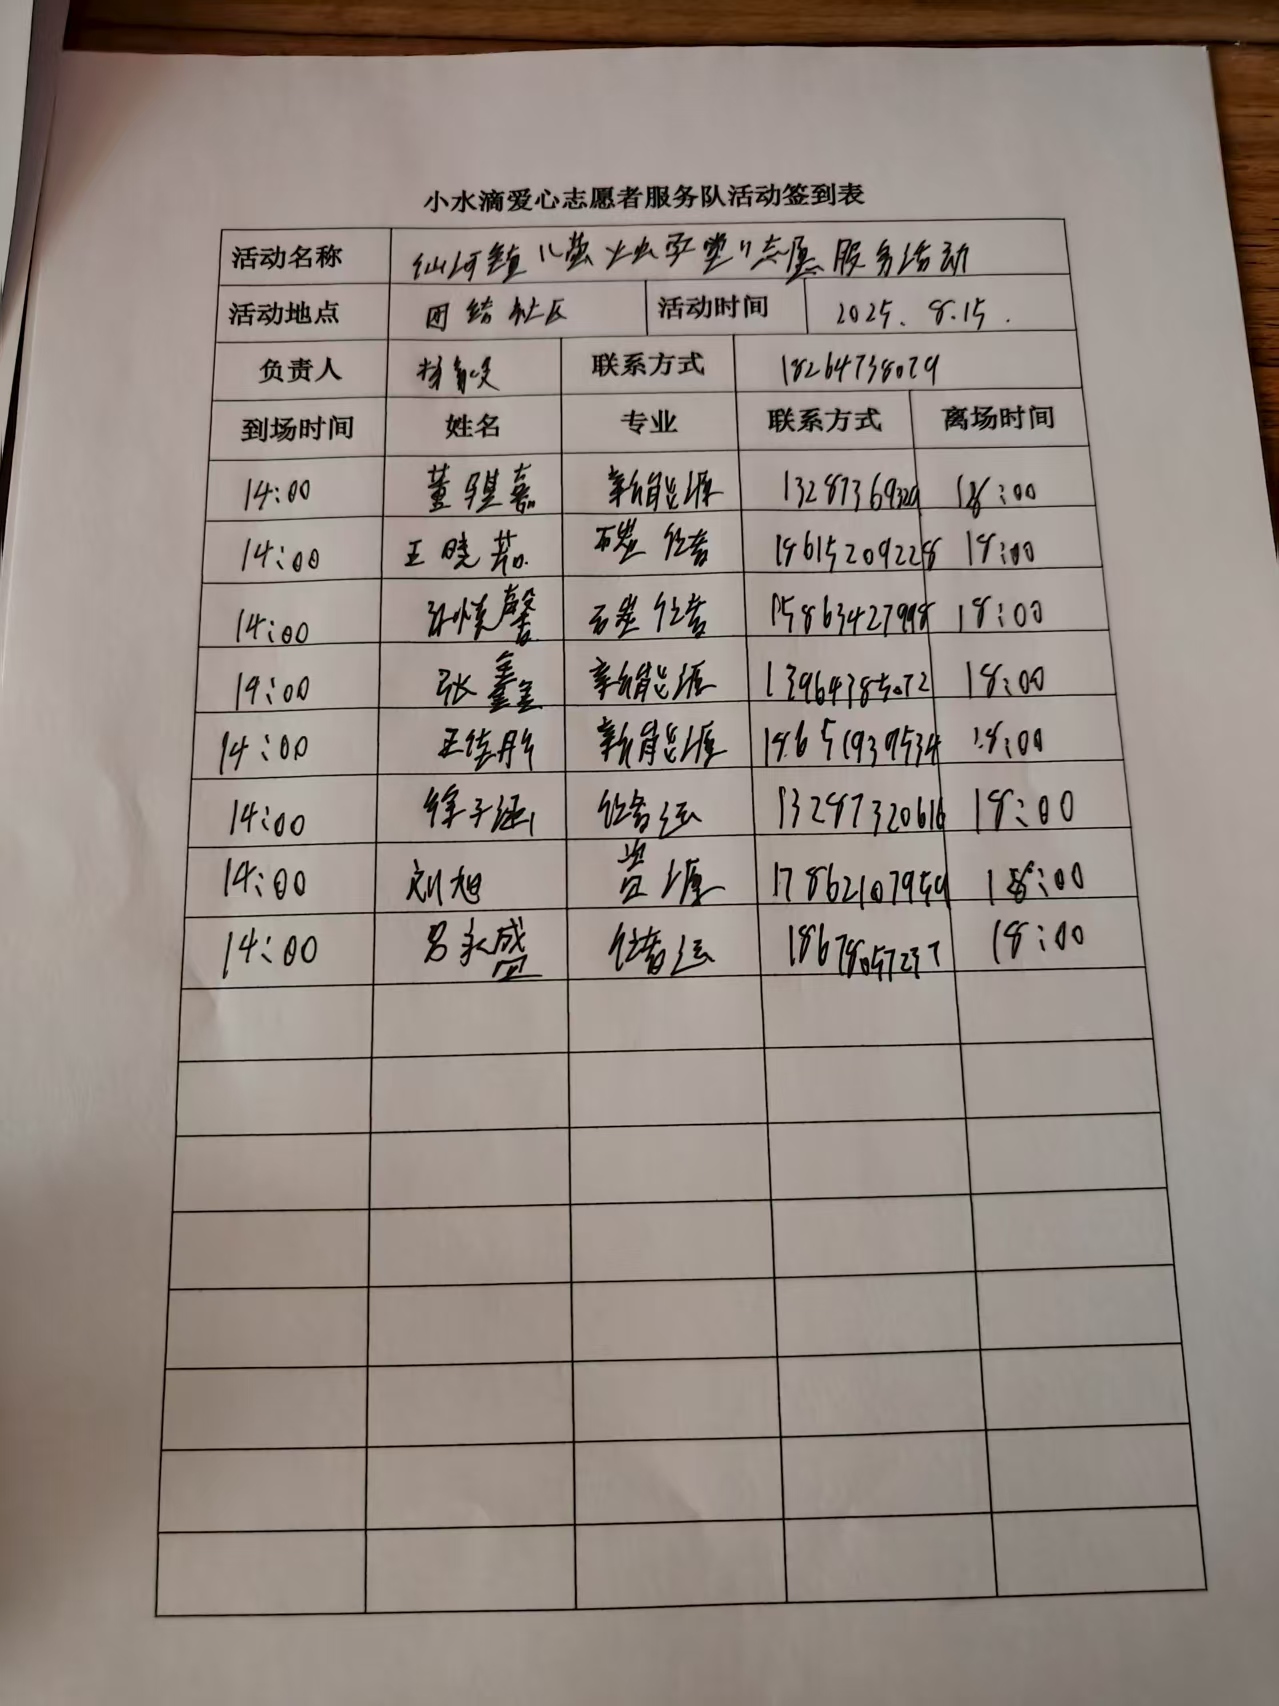 小水滴爱心志愿者服务队活动签到表
活动名称 仙河镇“萤火虫学堂”志愿服务活动
活动地点 团结社区 活动时间 2025.8.15.
负责人 联系方式 18264738079
到场时间 姓名 专业 联系方式 离场时间
14:00 董骐嘉 新能源 13287369329 18:00
14:00 王晓茹 石炭 经营 18615209228 18:00
14:00 孙愫馨 石炭 经营 15863427998 18:00
14:00 张鑫 新能源 13964785072 18:00
14:00 王佳彤 新能源 18651939534 18:00
14:00 徐子涵 经营运 13287320616 18:00
14:00 刘旭 资源 17862107959 18:00
14:00 吕永盛 经营运 18678057237 18:00